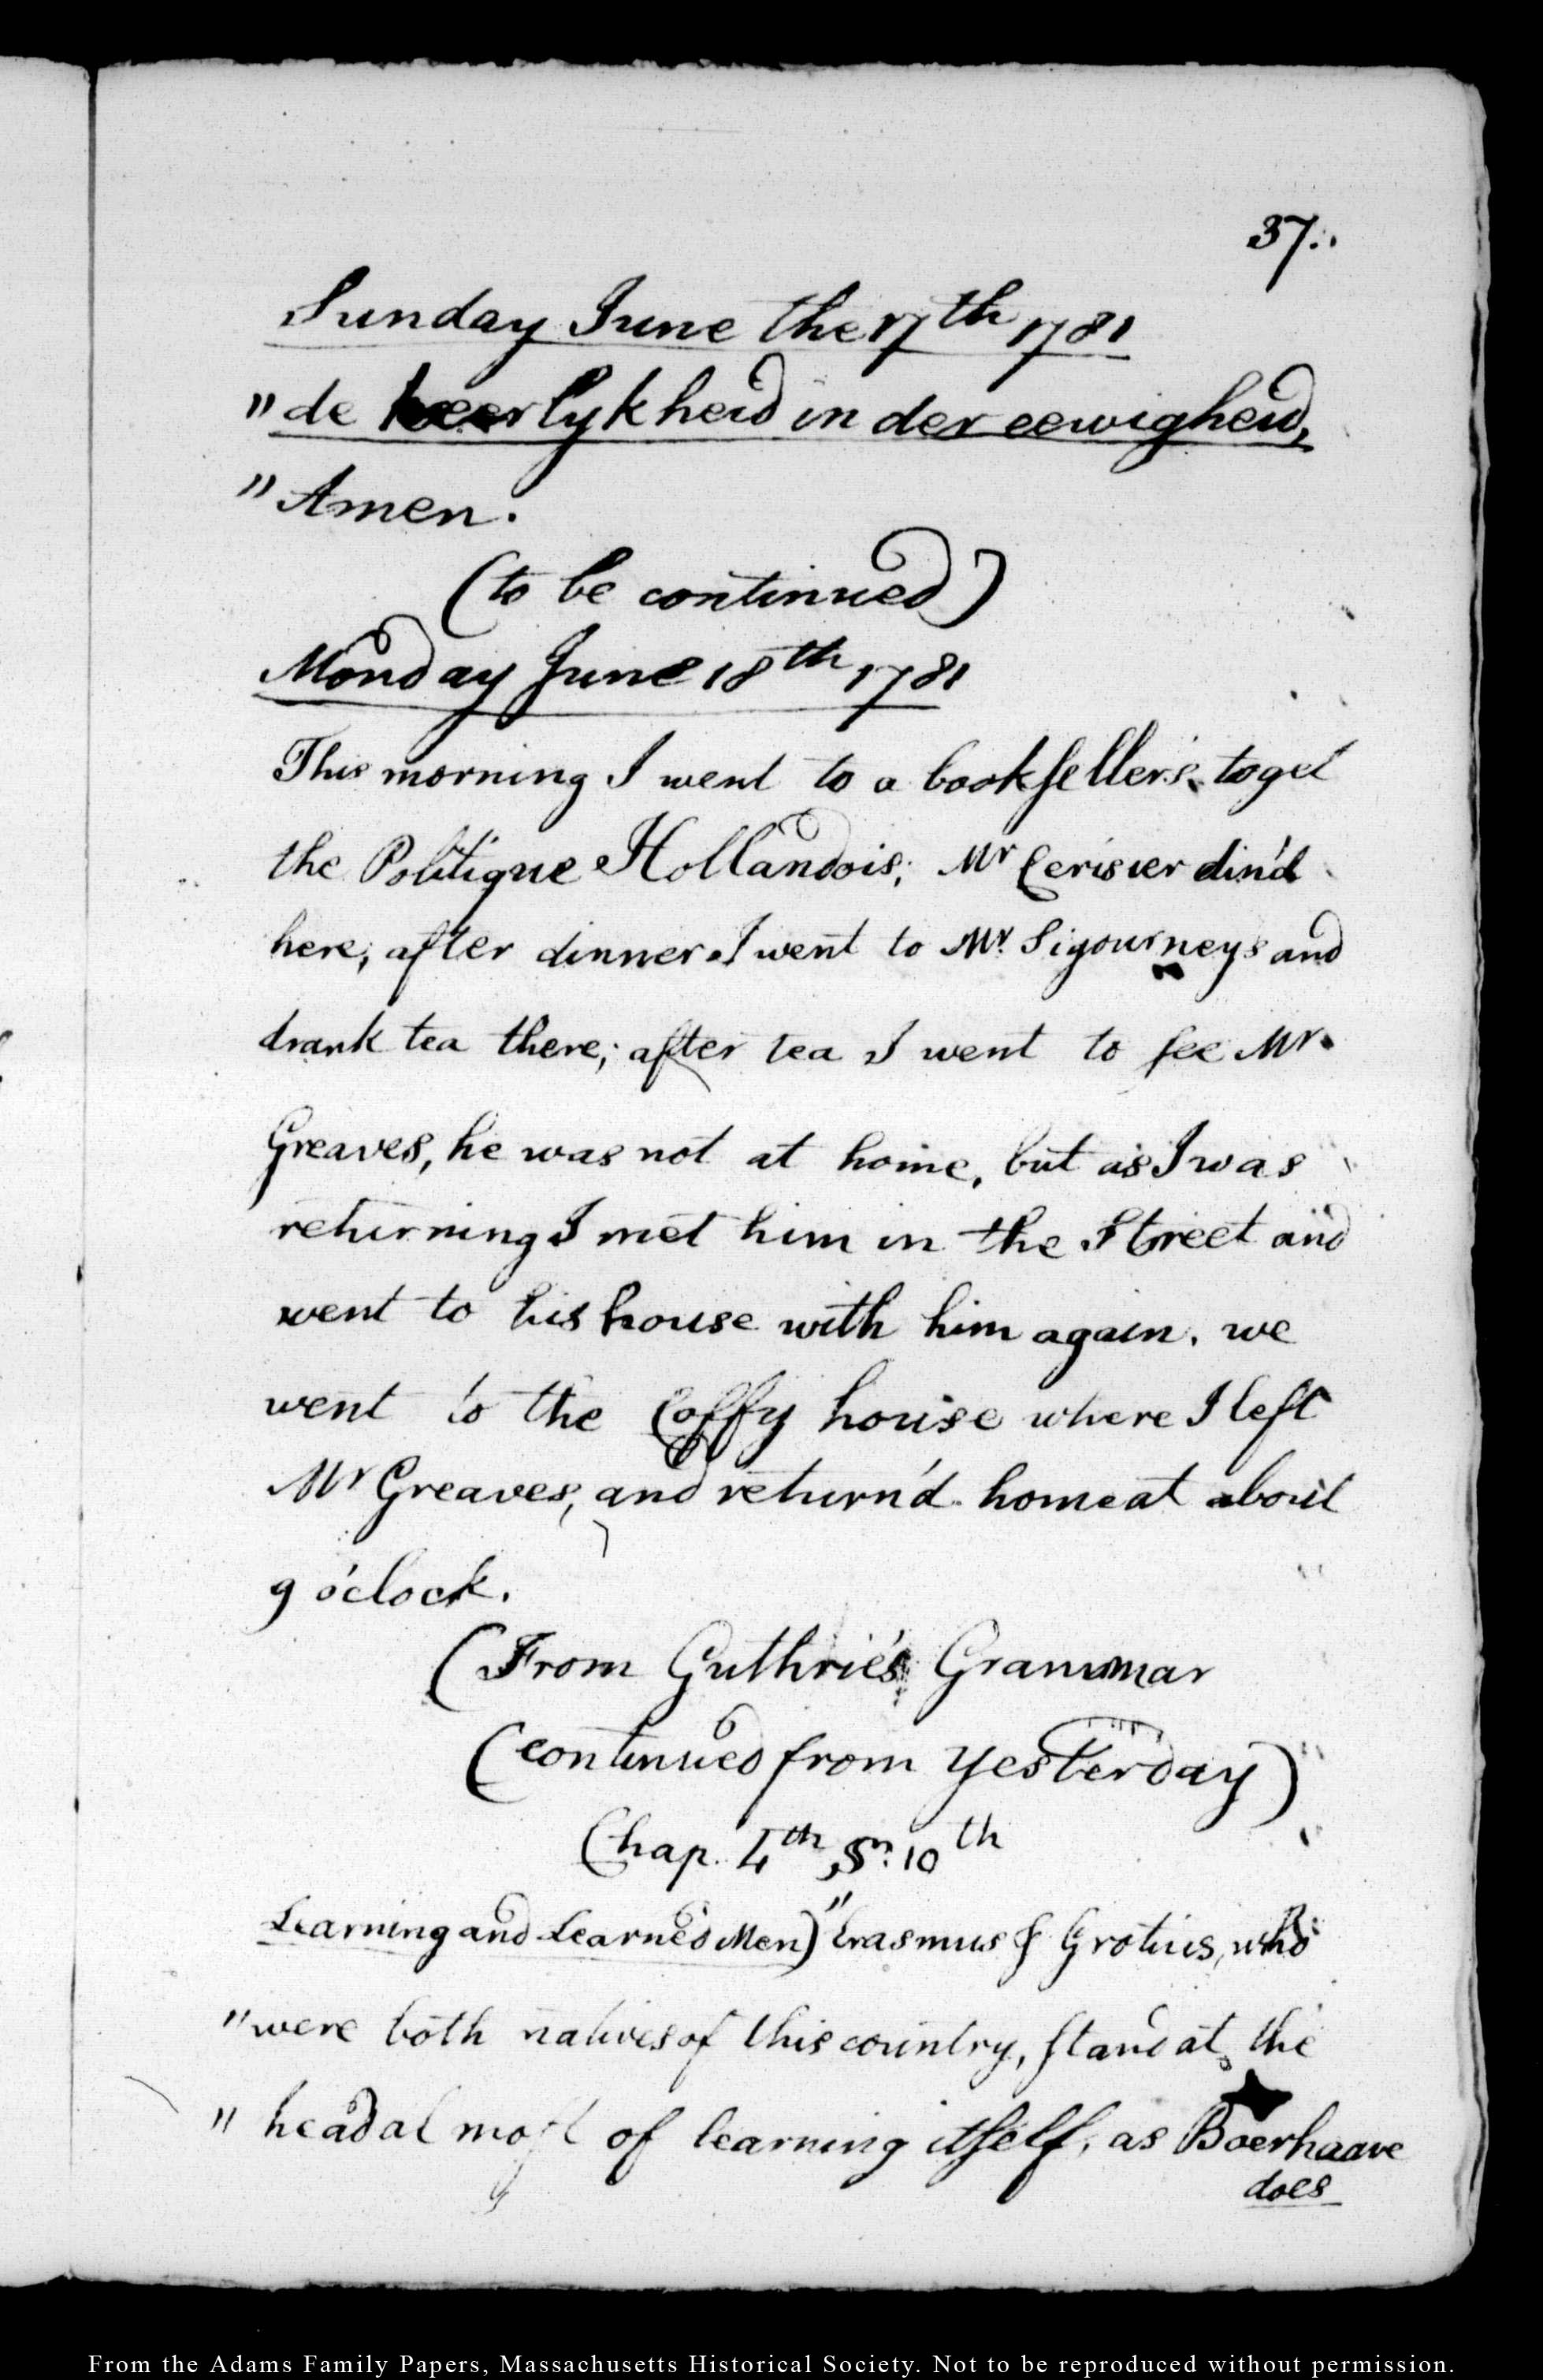 37..
Sunday June the 17th 1781
" de heerlykheid in der eewigheid,
" Amen.
(to be continued)
Monday June 18th 1781
This morning I went to a bookſellers to get
the Politique Hollandois; Mr Cerisier din'd
here; after dinner I went to Mr. Sigourneys and
drank tea there; after tea I went to ſee Mr.
Greaves, he was not at home, but as I was
returning I met him in the Street and
went to his house with him again. we
went to the Coffy house where I left
Mr Greaves, and return'd home at about
9 o'clock.
(From Guthrie's Grammar
(continued from yesterday)
Chap. 4th, Sn: 10th
Learning and Learned Men) "Erasmus & Grotius, who
" were both natives of this country, ſtand at the
" head almoſt of learning itſelf, as Boerhaave
does
From the Adams Family Papers, Massachusetts Historical Society. Not to be reproduced without permission.